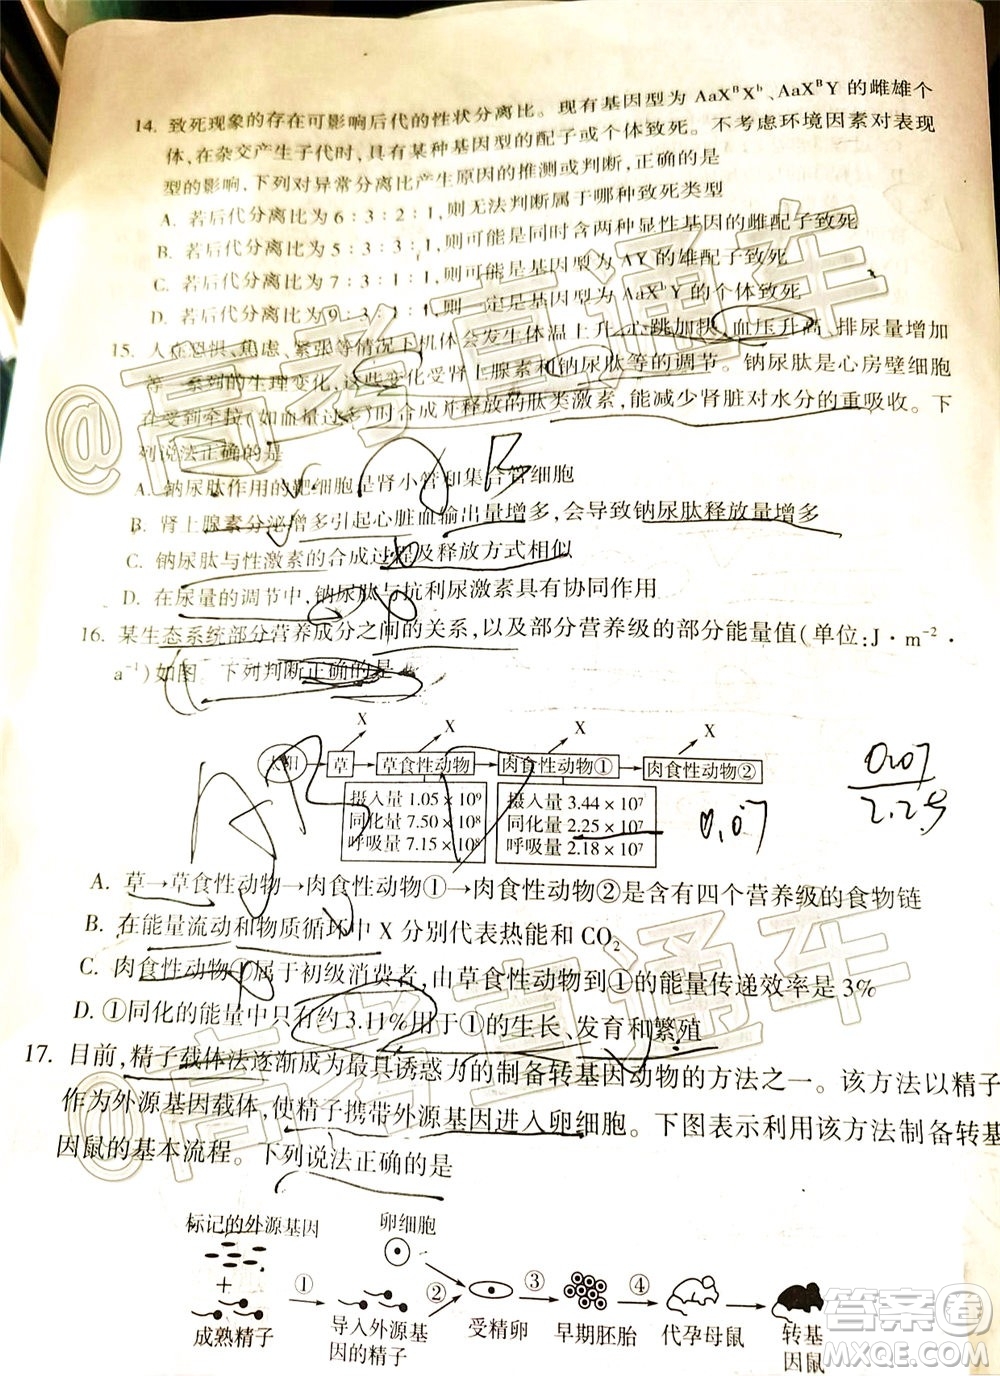 14. 致死现象的存在可影响后代的性状分离比。现有基因型为 AaXᴮXᵇ、AaXᴮY 的雌雄个
体,在杂交产生子代时,具有某种基因型的配子或个体致死。不考虑环境因素对表现
型的影响,下列对异常分离比产生原因的推测或判断,正确的是
A. 若后代分离比为 6∶3∶2∶1,则无法判断属于哪种致死类型
B. 若后代分离比为 5∶3∶3∶1,则可能是同时含两种显性基因的雌配子致死
C. 若后代分离比为 7∶3∶1∶1,则可能是基因型为 AY 的雄配子致死
D. 若后代分离比为 9∶3∶1∶1,则一定是基因型为 AaXᵇY 的个体致死
15. 人在恐惧、焦虑、紧张等情况下机体会发生体温上升、心跳加快、血压升高、排尿量增加
等一系列的生理变化,这些变化受肾上腺素和钠尿肽等的调节。钠尿肽是心房壁细胞
在受到牵拉(如血量过多)时合成并释放的肽类激素,能减少肾脏对水分的重吸收。下
列说法正确的是
A. 钠尿肽作用的靶细胞是肾小管和集合管细胞
B. 肾上腺素分泌增多引起心脏血输出量增多,会导致钠尿肽释放量增多
C. 钠尿肽与性激素的合成过程及释放方式相似
D. 在尿量的调节中,钠尿肽与抗利尿激素具有协同作用
16. 某生态系统部分营养成分之间的关系,以及部分营养级的部分能量值(单位:J·m⁻²·
a⁻¹)如图。下列判断正确的是
X X X X
太阳 草 草食性动物 肉食性动物① 肉食性动物②
摄入量 1.05×10⁹ 摄入量 3.44×10⁷
同化量 7.50×10⁸ 同化量 2.25×10⁷
呼吸量 7.15×10⁸ 呼吸量 2.18×10⁷
0.07
0.07
2.25
A. 草→草食性动物→肉食性动物①→肉食性动物②是含有四个营养级的食物链
B. 在能量流动和物质循环中 X 分别代表热能和 CO₂
C. 肉食性动物①属于初级消费者,由草食性动物到①的能量传递效率是 3%
D. ①同化的能量中只有约 3.11%用于①的生长、发育和繁殖
17. 目前,精子载体法逐渐成为最具诱惑力的制备转基因动物的方法之一。该方法以精子
作为外源基因载体,使精子携带外源基因进入卵细胞。下图表示利用该方法制备转基
因鼠的基本流程。下列说法正确的是
标记的外源基因 卵细胞
+ ① ② ③ ④
成熟精子 导入外源基因的精子 受精卵 早期胚胎 代孕母鼠 转基因鼠
@高考直通车
@高考直通车
答案圈
MXQE.COM